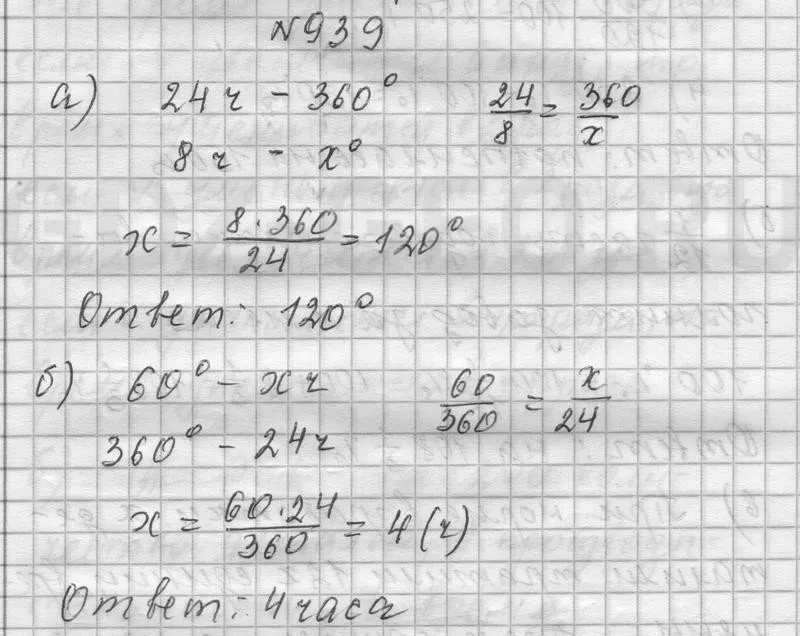 №939
а) 24ч - 360° 24/8 = 360/x
8ч - x°
x = 8·360/24 = 120°
Ответ: 120°
б) 60° - xч 60/360 = x/24
360° - 24ч
x = 60·24/360 = 4 (ч)
Ответ: 4 часа